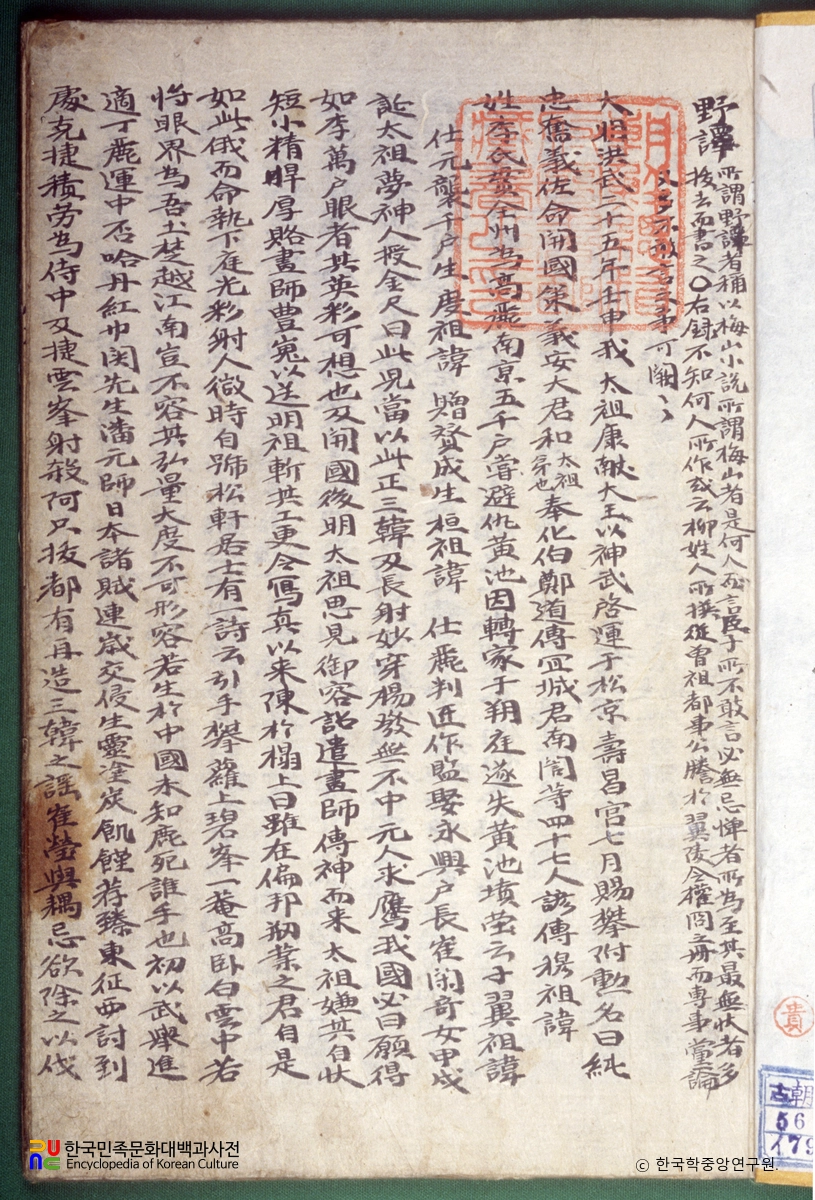 野譚
所謂野譚者稱以梅山小說所謂梅山者是何人所言臣子所不敢言必無忌憚者所爲至其最無狀者多
拔去而書之○右錄不知何人所作或云柳姓人所撰從曾祖都事公謄於翼陵令權問之册而專事黨論
又多不敢言之事可闕之
大明洪武二十五年壬申我 太祖康獻大王以神武啓運于松京壽昌宮七月賜攀附勳名曰純
忠奮義佐命開國策義安大君和太祖弟也奉化伯鄭道傳宜城君南誾等四十七人諺傳穆祖諱
姓李氏貫全州爲高麗南京五千戶嘗避仇黃池因轉家于朔庭遂失黃池墳塋云子翼祖諱
仕元襲千戶生度祖諱 贈贊成生桓祖諱 仕麗判匠作監娶永興戶長崔閑奇女甲成
誕太祖夢神人授金尺曰此兒當以此正三韓及長射妙穿楊發無不中元人求鷹我國必曰願得
如李萬戶眼者其英彩可想也及開國後明太祖思見御容詔遣畫師傳神而來太祖嫌其自狀
短小精悍厚賂畫師豊嵬以送明祖斬其工更令寫眞以來陳於榻上曰雖在偏邦刱業之君自是
如此俄而命執下庭光彩射人微時自號松軒居士有一詩云引手攀蘿上碧峯一菴高臥白雲中若
將眼界爲吾土楚越江南豈不容其弘量大度不可形容若生於中國未知鹿死誰手也初以武擧進
適丁麗運中否哈丹紅巾関先生潘元師日本諸賊連歲交侵生靈塗炭飢饉荐臻東征西討到
處克捷積勞爲侍中又捷雲峯射殺阿只拔都有再造三韓之謠崔瑩與耦忌欲除之以伐
貴
朝
古
56
179
한국민족문화대백과사전
Encyclopedia of Korean Culture
© 한국학중앙연구원.